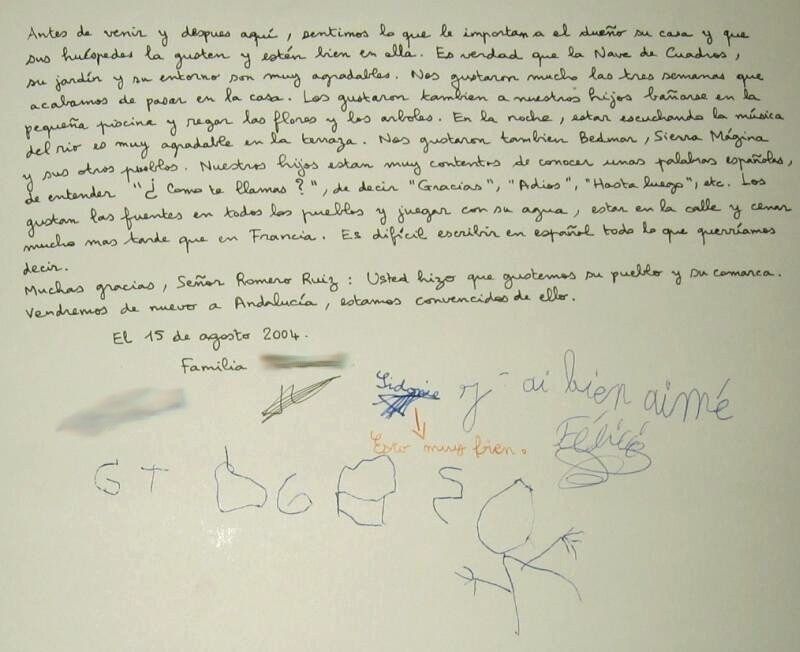 Antes de venir y despues aquí, sentimos lo que le importan a el dueño su casa y que
sus huéspedes la gusten y estén bien en ella. Es verdad que la Nave de Cuadros,
su jardín y su entorno son muy agradables. Nos gustaron mucho las tres semanas que
acabamos de pasar en la casa. Los gustaron tambien a nuestros hijos bañarse en la
pequeña piscina y regar las flores y los arboles. En la noche, estar escuchando la música
del rio es muy agradable en la terraza. Nos gustaron tambien Bedmar, Sierra Mágina
y sus otros pueblos. Nuestros hijos estan muy contentos de conocer unas palabras españolas,
de entender "¿Como te llamas?", de decir "Gracias", "Adios", "Hasta luego", etc. Los
gustan las fuentes en todos los pueblos y juegar con su agua, estar en la calle y cenar
mucho mas tarde que en Francia. Es difícil escribir en español todo lo que querríamos
decir.
Muchas gracias, Señor Romero Ruiz : Usted hizo que gustemos su pueblo y su comarca.
Vendremos de nuevo a Andalucía, estamos convencidos de ello.
El 15 de agosto 2004.
Familia
Sidonie
j'ai bien aimé
Esto muy bien.
G T